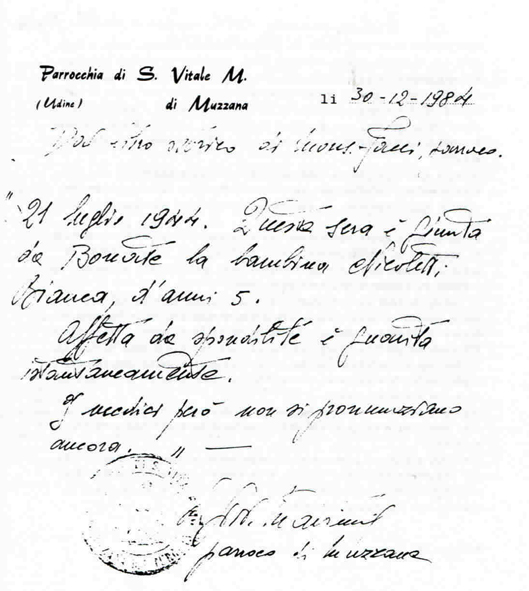 Parrocchia di S. Vitale M.
(Udine) di Muzzana
li 30-12-1984
Dal libro storico di Mons. parroco.
" 21 luglio 1944. Questa sera è giunta
da Bonate la bambina Nicoletti
Bianca, d'anni 5.
Affetta da spondilite è guarita
istantaneamente.
I medici però non si pronunziano
ancora. " —
parroco di Muzzana